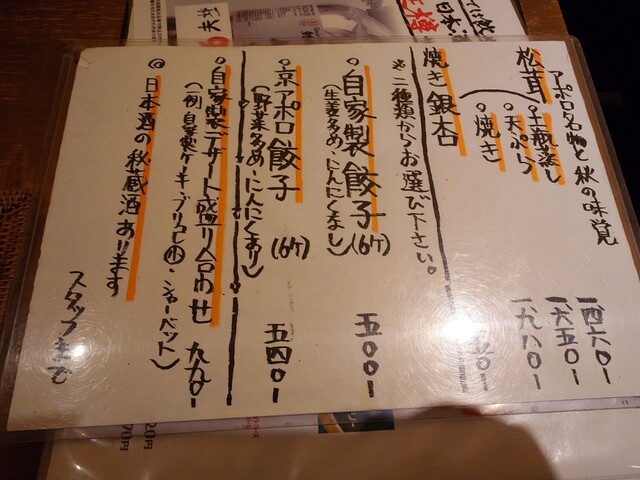 アポロ名物と秋の味覚
松茸
土瓶蒸し 一、四六〇-
天ぷら 一、六五〇-
焼き 一、九八〇-
焼き銀杏 五〇-
※二種類からお選び下さい。
自家製餃子(6ケ) 五〇〇-
(生姜多め・にんにくなし)
京アポロ餃子(6ケ) 五四〇-
(野菜多め・にんにくあり)
自家製デザート盛り合わせ 九九〇-
(一例 自家製ケーキ・ブリュレ㊛・シャーベット)
◎日本酒の秘蔵酒あります
スタッフまで
日本酒
20円
70円